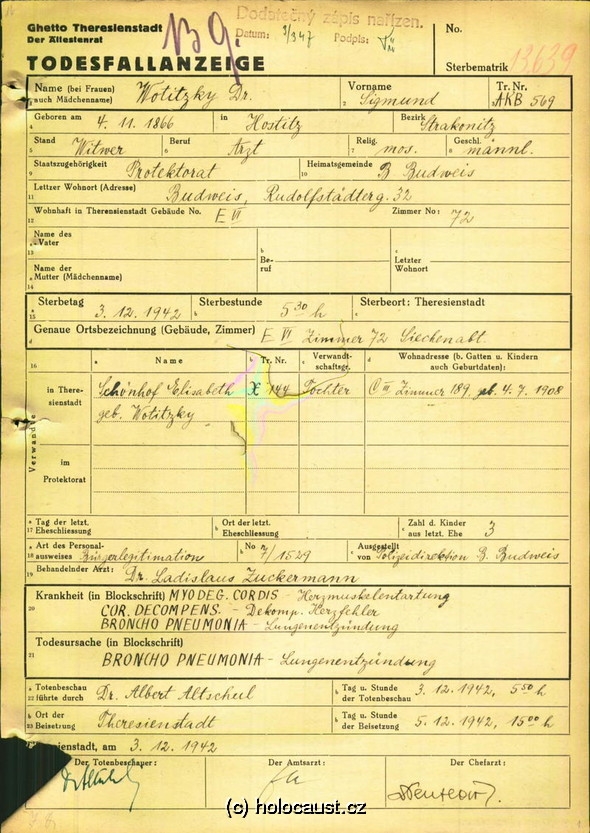 Ghetto Theresienstadt
Der Ältestenrat
TODESFALLANZEIGE
Dodatečný zápis nařízen.
Datum: Podpis:
No.
Sterbematrik 13639
Name (bei Frauen) auch Mädchenname) Wotitzky Dr.
Vorname Sigmund
Tr. Nr. AKB 569
Geboren am 4. 11. 1866 in Hostitz Bezirk Strakonitz
Stand Witwer Beruf Arzt Relig. mos. Geschl. männl.
Staatszugehörigkeit Protektorat Heimatsgemeinde B. Budweis
Letzter Wohnort (Adresse) Budweis, Rudolfstädterg. 32
Wohnhaft in Theresienstadt Gebäude No. E VI Zimmer No: 72
Name des Vater
Name der Mutter (Mädchenname)
Beruf
Letzter Wohnort
Sterbetag 3. 12. 1942 Sterbestunde 5 30 h Sterbeort: Theresienstadt
Genaue Ortsbezeichnung (Gebäude, Zimmer) E VI Zimmer 72 Siechenabt.
Name Tr. Nr. Verwandtschaftsgr. Wohnadresse (b. Gatten u. Kindern auch Geburtdaten):
Verwandte
in Theresienstadt Schönhof Elisabeth X 144 Tochter Zimmer 189, geb. 4. 7. 1908
geb. Wotitzky
im Protektorat
Tag der letzt. Eheschliessung
Ort der letzt. Eheschliessung
Zahl d. Kinder aus letzt. Ehe 3
Art des Personalausweises Bürgerlegitimation No 7/1529 Ausgestellt von Polizeidirektion B. Budweis
Behandelnder Arzt: Dr. Ladislaus Zuckermann
Krankheit (in Blockschrift) MYODEG. CORDIS - Herzmuskelentartung
COR. DECOMPENS. - Dekomp. Herzfehler
BRONCHO PNEUMONIA - Lungenentzündung
Todesursache (in Blockschrift)
BRONCHO PNEUMONIA - Lungenentzündung
Totenbeschau führte durch Dr. Albert Altschul
Tag u. Stunde der Totenbeschau 3. 12. 1942, 5 50 h
Ort der Beisetzung Theresienstadt
Tag u. Stunde der Beisetzung 5. 12. 1942, 15 00 h
Theresienstadt, am 3. 12. 1942
Der Totenbeschauer: Der Amtsarzt: Der Chefarzt:
(c) holocaust.cz